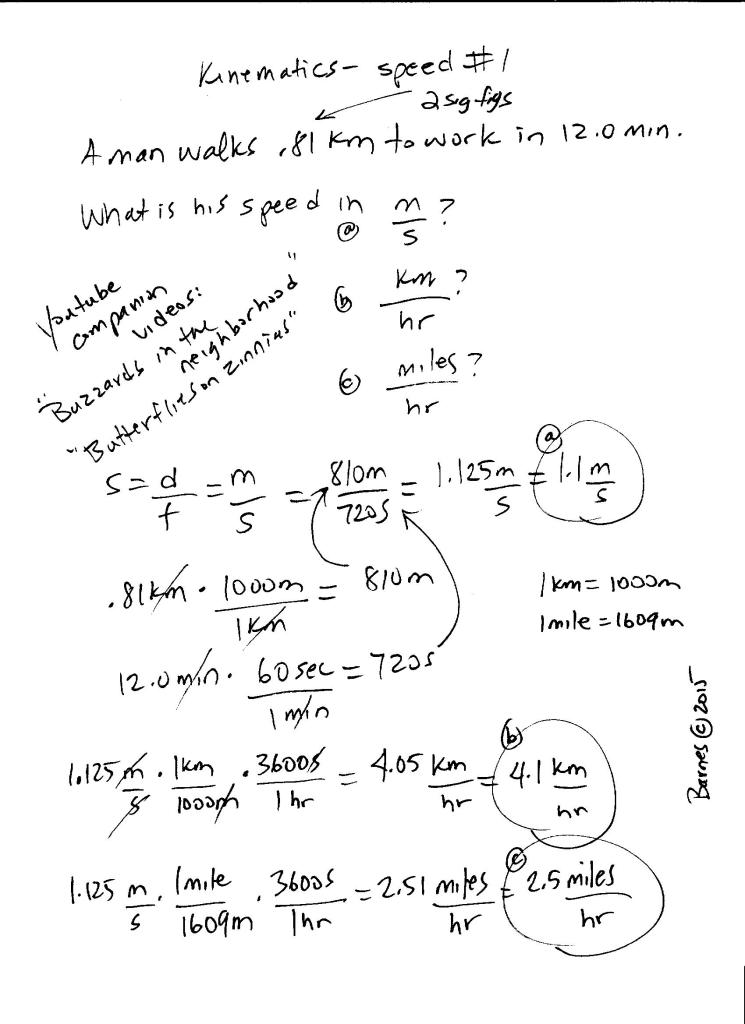 Kinematics - speed #1
2 sig figs
A man walks .81 km to work in 12.0 min.
What is his speed in
ⓐ m/s ?
ⓑ km/hr ?
ⓒ miles/hr ?
Youtube
companion
videos:
"Buzzards in the
neighborhood"
"Butterflies on zinnias"
s = d/t = m/s = 810m/720s = 1.125 m/s = ⓐ 1.1 m/s
.81 km · 1000m/1 km = 810m
1 km = 1000m
1 mile = 1609m
12.0 min · 60 sec/1 min = 720s
1.125 m/s · 1km/1000m · 3600s/1 hr = 4.05 km/hr = ⓑ 4.1 km/hr
1.125 m/s · 1mile/1609m · 3600s/1hr = 2.51 miles/hr = ⓒ 2.5 miles/hr
Barnes © 2015